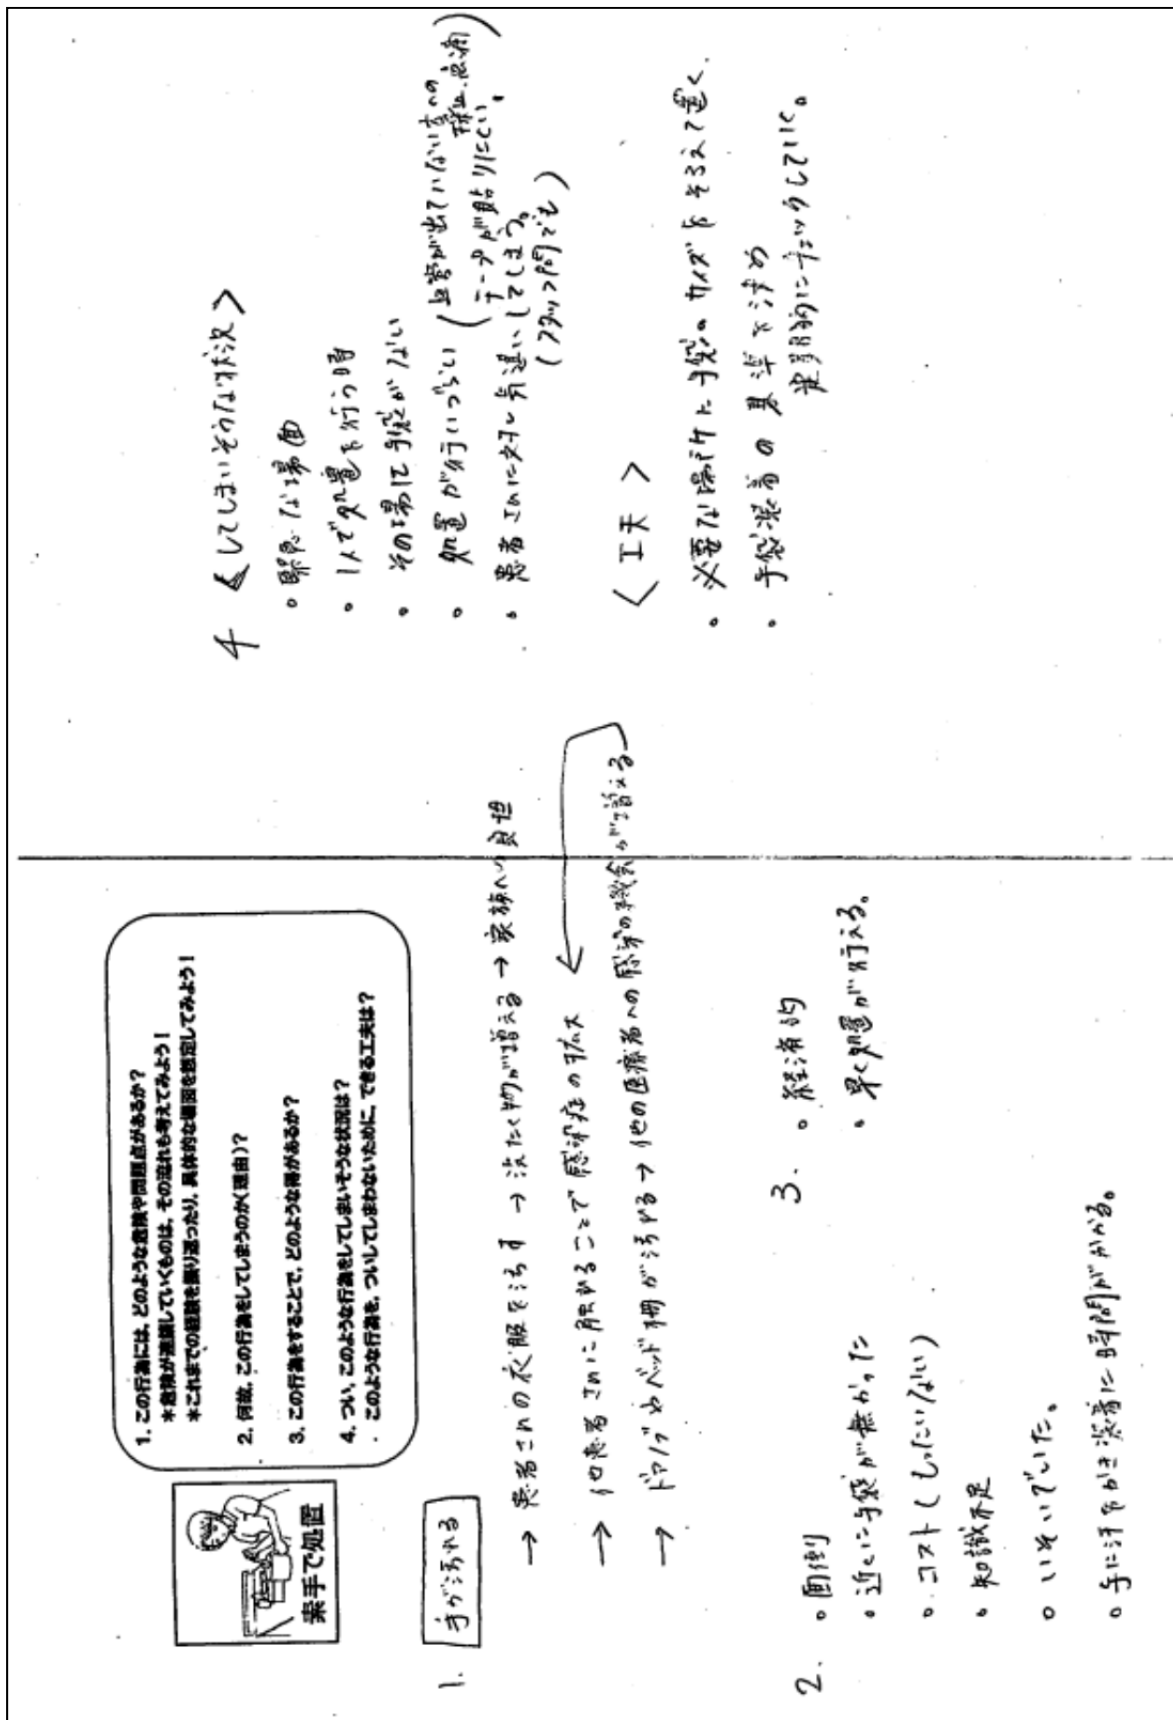 素手で処置
1. この行為には、どのような危険や問題点があるか？
＊危険が連鎖していくものは、その流れも考えてみよう！
＊これまでの経験を振り返ったり、具体的な場面を想定してみよう！
2. 何故、この行為をしてしまうのか(理由)？
3. この行為をすることで、どのような得があるか？
4. つい、このような行為をしてしまいそうな状況は？
このような行為を、ついしてしまわないために、できる工夫は？
1. 手が汚れる
→ 患者さんの衣服を汚す → 洗たく物が増える → 家族への負担
→ 他患者さんに触れることで感染症のリスク
→ ドアノブやベッド柵が汚れる → 他の医療者への感染の機会が増える
2. ・面倒
・近くに手袋が無かった
・コスト（もったいない）
・知識不足
・いそいでいた。
・手に汗をかき装着に時間がかかる。
3. ・経済的
・早く処置が行える。
4 <してしまいそうな状況>
・緊急な場面
・1人で処置を行う時
・その場に手袋がない
・処置が行いづらい (血管が出ていない方への採血、点滴
テープが貼りにくい。)
・患者さんに対し気遣いしてしまう。
(スタッフ間でも)
<工夫>
・必要な場所に手袋のサイズをそろえて置く。
・手袋装着の基準を決め
定期的にチェックしていく。